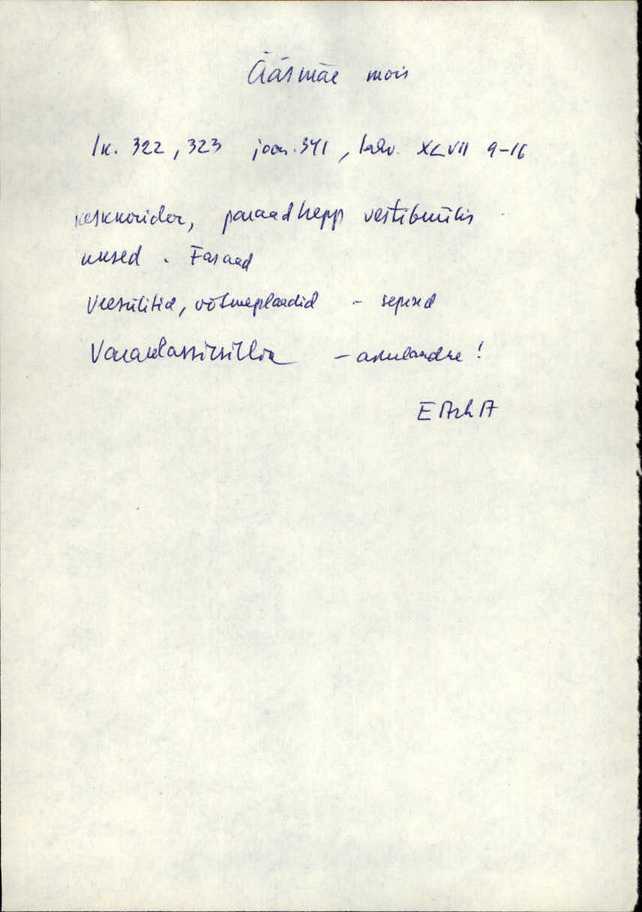 Ääsmäe mois
lk. 322, 323 joon. 341, tahv. XLVII 9-16
keskkoridor, paraadtrepp vestibüülis
uksed. Fasaad
Veesülitid, võtmeplaadid - sepised
Varaklassitsistlik - aknalaudne!
E Arh A